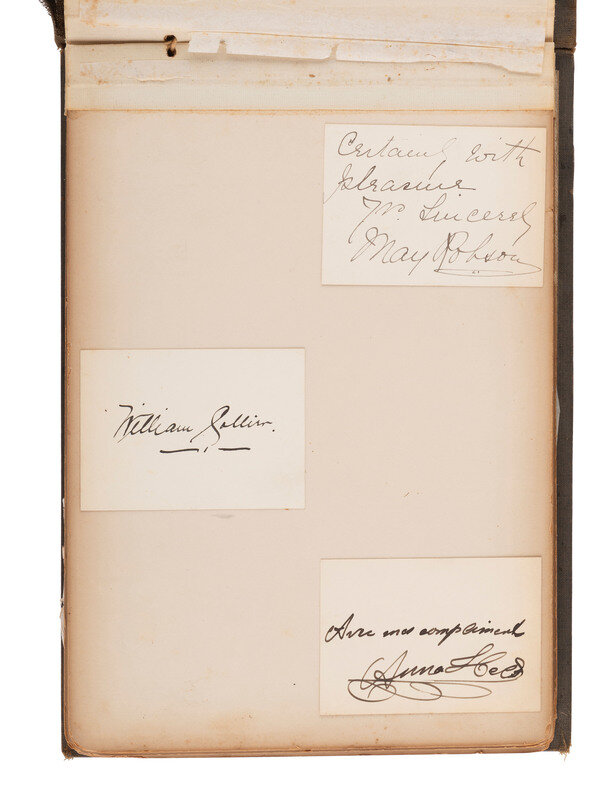 Certainly with
pleasure
Yr. Sincerely
May Robson
William Collier.
Avec mes compliment
Anna Held